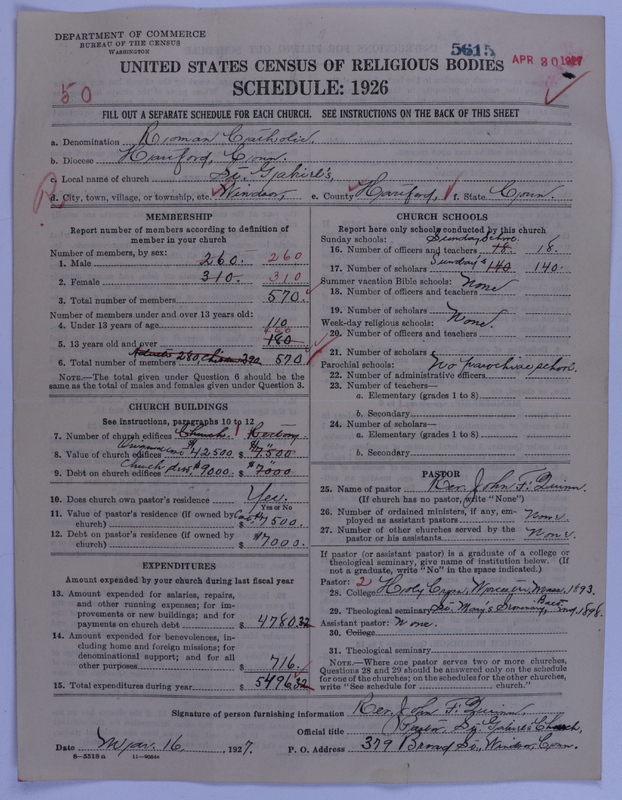 DEPARTMENT OF COMMERCE
BUREAU OF THE CENSUS
WASHINGTON
5615
APR 30 1927
UNITED STATES CENSUS OF RELIGIOUS BODIES
SCHEDULE: 1926
50
FILL OUT A SEPARATE SCHEDULE FOR EACH CHURCH. SEE INSTRUCTIONS ON THE BACK OF THIS SHEET
a. Denomination Roman Catholic.
b. Diocese Hartford, Conn.
c. Local name of church St. Gabriel's,
d. City, town, village, or township, etc. Windsor, e. County Hartford, f. State Conn.
MEMBERSHIP
Report number of members according to definition of
member in your church
Number of members, by sex:
1. Male 260. 260
2. Female 310. 310
3. Total number of members 570.
Number of members under and over 13 years old:
4. Under 13 years of age 110
460
5. 13 years old and over 180
6. Total number of members 570
NOTE.—The total given under Question 6 should be the
same as the total of males and females given under Question 3.
CHURCH BUILDINGS
See instructions, paragraphs 10 to 12
7. Number of church edifices Church. 1 Rectory
8. Value of church edifices $42500. $7,500
9. Debt on church edifices Church debt, $9000. $7000
10. Does church own pastor's residence Yes.
Yes or No
11. Value of pastor's residence (if owned by
church) $7500.
12. Debt on pastor's residence (if owned by
church) $7000.
EXPENDITURES
Amount expended by your church during last fiscal year
13. Amount expended for salaries, repairs,
and other running expenses; for im-
provements or new buildings; and for
payments on church debt $4780.32
14. Amount expended for benevolences, in-
cluding home and foreign missions; for
denominational support; and for all
other purposes $716.
15. Total expenditures during year $5496.32
CHURCH SCHOOLS
Report here only schools conducted by this church
Sunday schools: Sunday School
16. Number of officers and teachers 18. 18.
17. Number of scholars 140 140.
Summer vacation Bible schools: None
18. Number of officers and teachers
19. Number of scholars
Week-day religious schools: None.
20. Number of officers and teachers
21. Number of scholars
Parochial schools: No parochial school.
22. Number of administrative officers
23. Number of teachers—
a. Elementary (grades 1 to 8)
b. Secondary
24. Number of scholars—
a. Elementary (grades 1 to 8)
b. Secondary
PASTOR
25. Name of pastor Rev. John F. Quinn.
(If church has no pastor, write "None")
26. Number of ordained ministers, if any, em-
ployed as assistant pastors None
27. Number of other churches served by the
pastor or his assistants None
If pastor (or assistant pastor) is a graduate of a college or
theological seminary, give name of institution below. (If
not a graduate, write "No" in the space indicated.)
Pastor: 2
28. College Holy Cross, Worcester, Mass. 1893.
29. Theological seminary St. Mary's Seminary, Balto. Md. 1898.
Assistant pastor: None.
30. College
31. Theological seminary
NOTE.—Where one pastor serves two or more churches,
Questions 28 and 29 should be answered only on the schedule
for one of the churches; on the schedules for the other churches,
write "See schedule for church."
Signature of person furnishing information Rev. John F. Quinn.
Official title Pastor, St. Gabriel's Church,
Date Mar. 16, 1927. P. O. Address 379 Broad St., Windsor, Conn.
8—5518a 11—9024a